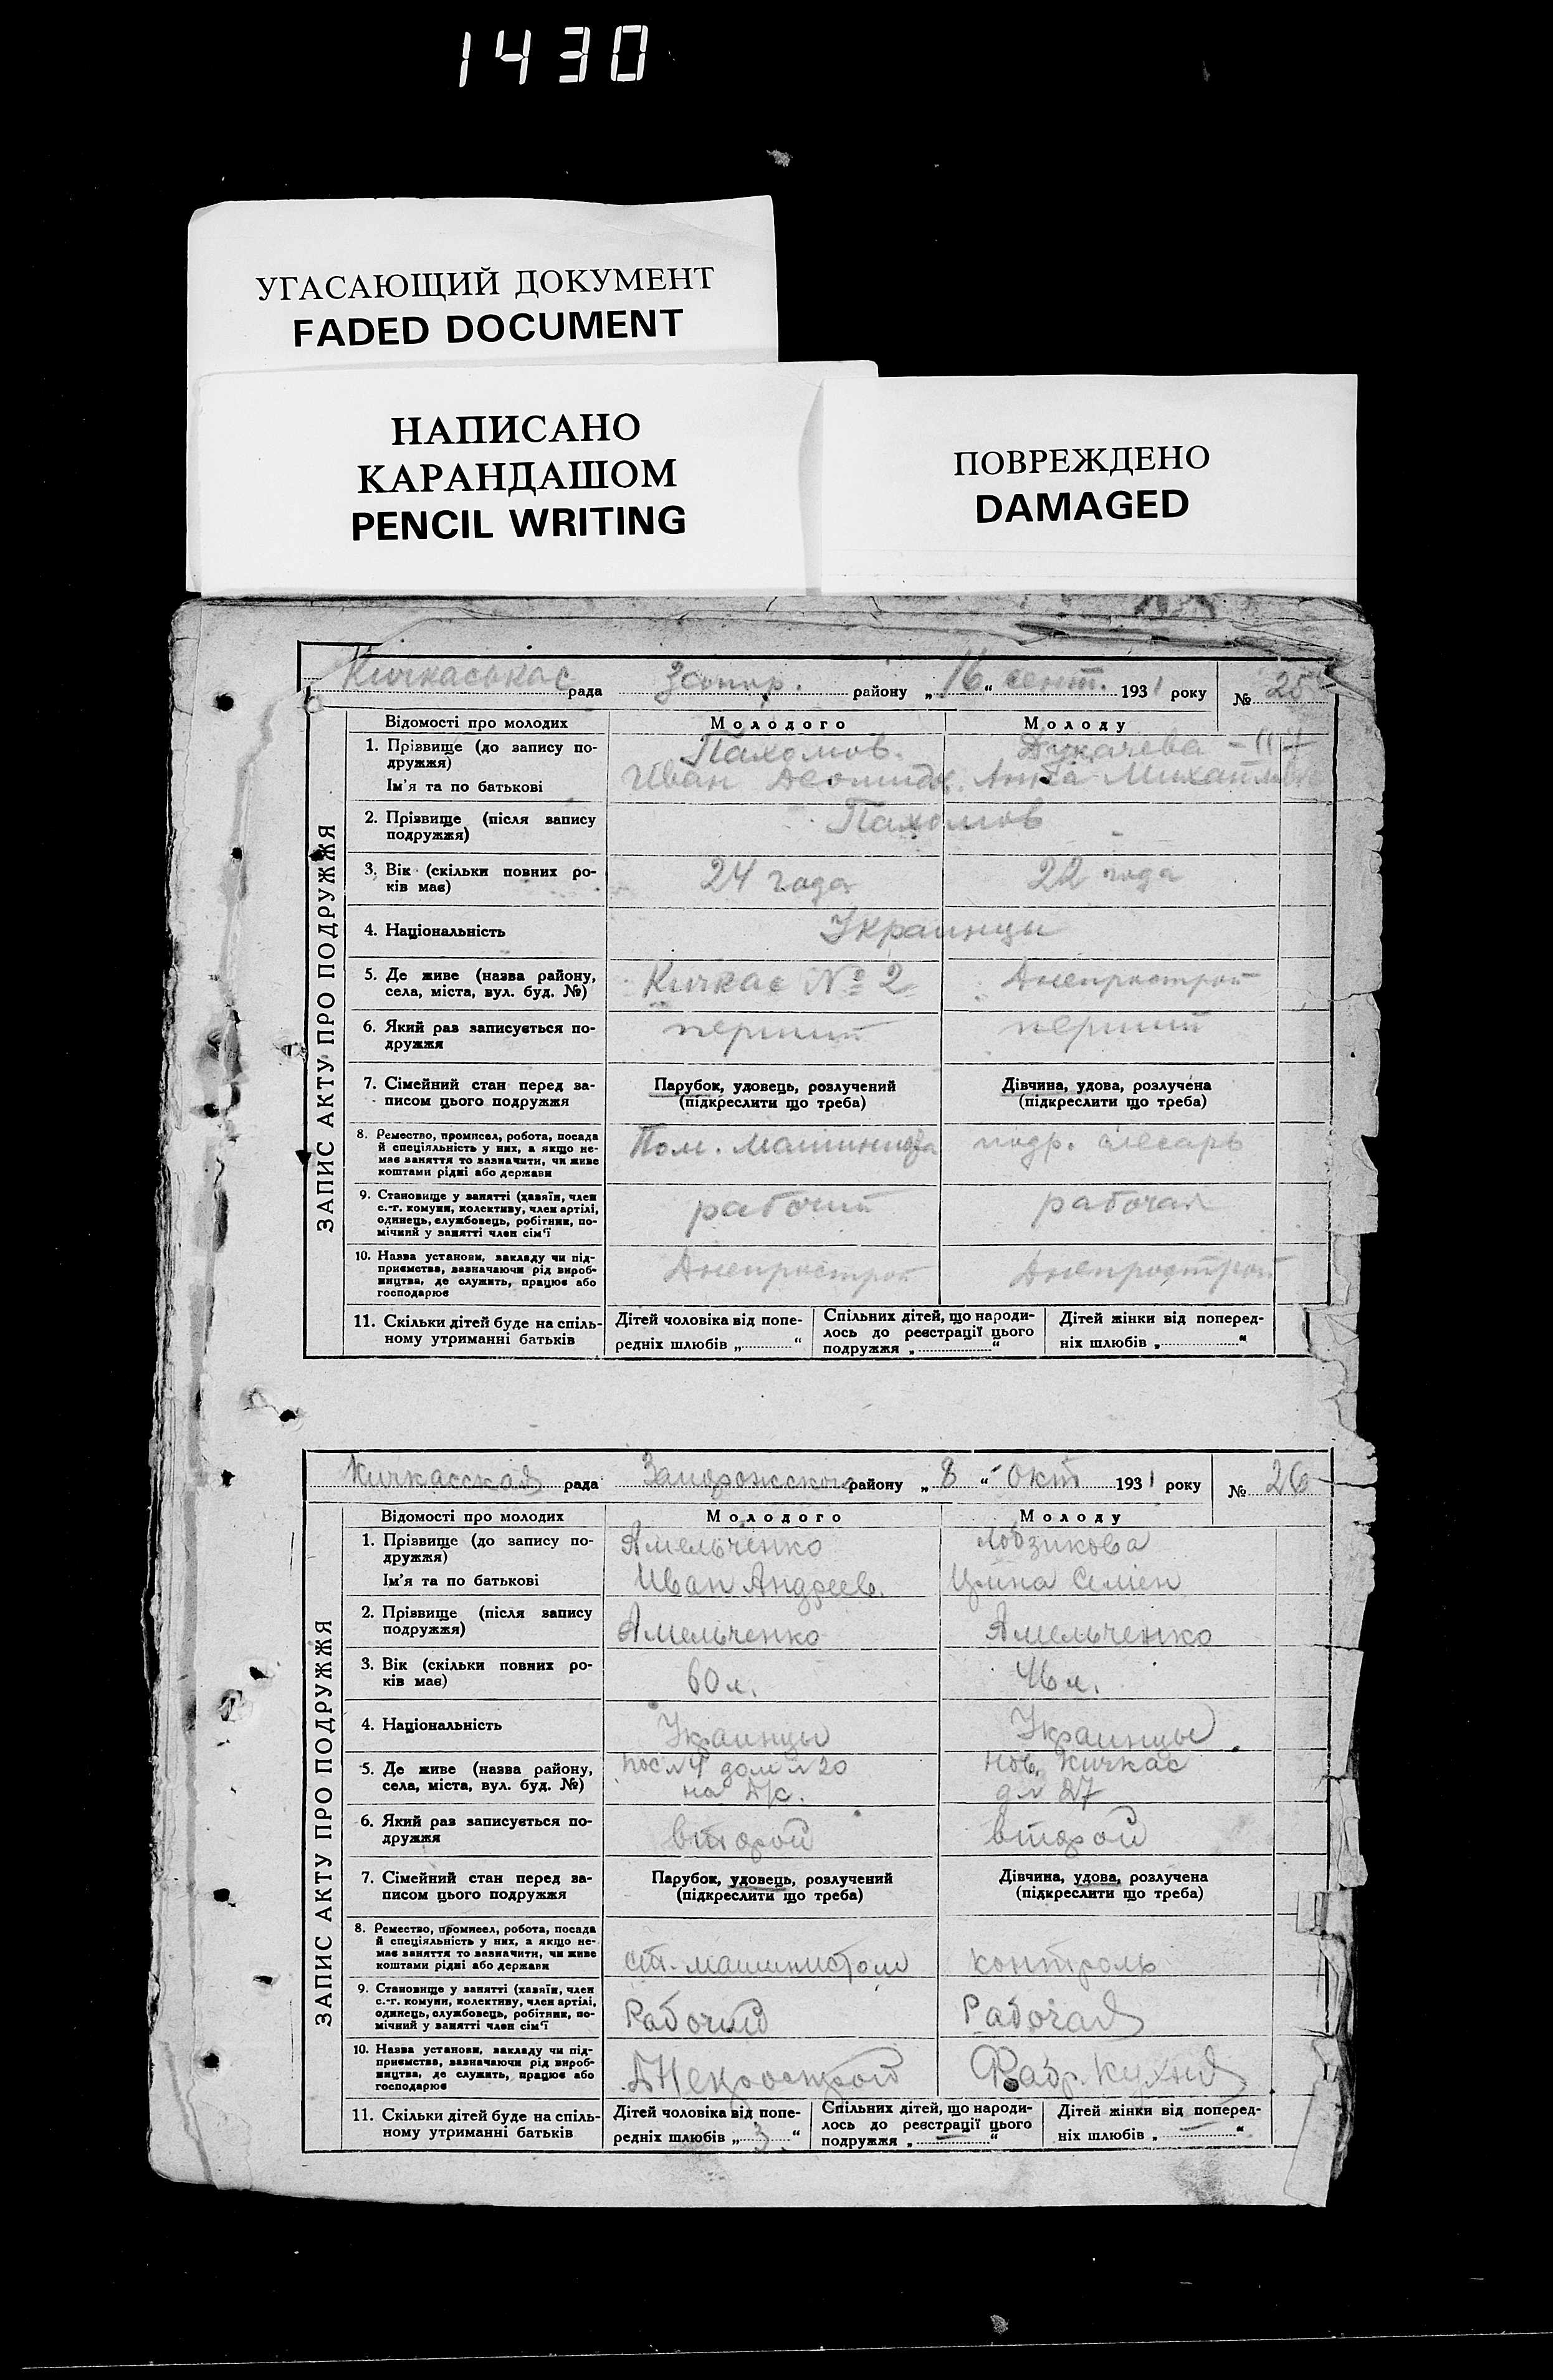 1430
УГАСАЮЩИЙ ДОКУМЕНТ
FADED DOCUMENT
НАПИСАНО
КАРАНДАШОМ
PENCIL WRITING
ПОВРЕЖДЕНО
DAMAGED
рада Запор. району „16“ сент. 1931 року № 25
ЗАПИС АКТУ ПРО ПОДРУЖЖЯ
Відомості про молодих Молодого Молоду
1. Прізвище (до запису по-
дружжя)
Пахомов.
Ім'я та по батькові
Иван Анна
2. Прізвище (після запису
подружжя)
Пахомов
3. Вік (скільки повних ро-
ків має)
24 года 22 года
4. Національність Украинцы
5. Де живе (назва району,
села, міста, вул. буд. №)
Кичкас № 2 Днепрострой
6. Який раз записується по-
дружжя
7. Сімейний стан перед за-
писом цього подружжя
Парубок, удовець, розлучений
(підкреслити що треба)
Дівчина, удова, розлучена
(підкреслити що треба)
8. Ремество, промисел, робота, посада
й спеціяльність у них, а якщо не-
має заняття то зазначити, чи живе
коштами рідні або держави
Пом. машиниста подр. слесарь
9. Становище у занятті (хазяїн, член
с.-г. комуни, колективу, член артілі,
одинець, службовець, робітник, по-
мічний у занятті член сім'ї
рабочий рабочая
10. Назва установи, закладу чи під-
приємства, зазначаючи рід вироб-
ництва, де служить, працює або
господарює
Днепрострой Днепрострой
11. Скільки дітей буде на спіль-
ному утриманні батьків
Дітей чоловіка від попе-
редніх шлюбів „ “
Спільних дітей, що народи-
лось до реєстрації цього
подружжя „ “
Дітей жінки від поперед-
ніх шлюбів „ “
Кичкасская рада Запорожского району „8“ окт 1931 року № 26
ЗАПИС АКТУ ПРО ПОДРУЖЖЯ
Відомості про молодих Молодого Молоду
1. Прізвище (до запису по-
дружжя)
Амельченко Лобзикова
Ім'я та по батькові
Иван Андреев.
2. Прізвище (після запису
подружжя)
Амельченко Амельченко
3. Вік (скільки повних ро-
ків має)
60 л. 46 л.
4. Національність Украинцы Украинцы
5. Де живе (назва району,
села, міста, вул. буд. №)
пос № 4 дом № 20
на Д/с.
Нов. Кичкас
6. Який раз записується по-
дружжя
второй второй
7. Сімейний стан перед за-
писом цього подружжя
Парубок, удовець, розлучений
(підкреслити що треба)
Дівчина, удова, розлучена
(підкреслити що треба)
8. Ремество, промисел, робота, посада
й спеціяльність у них, а якщо не-
має заняття то зазначити, чи живе
коштами рідні або держави
ст. машинистом контроль
9. Становище у занятті (хазяїн, член
с.-г. комуни, колективу, член артілі,
одинець, службовець, робітник, по-
мічний у занятті член сім'ї
Рабочий Рабочая
10. Назва установи, закладу чи під-
приємства, зазначаючи рід вироб-
ництва, де служить, працює або
господарює
Днепрострой Фабр. кухня
11. Скільки дітей буде на спіль-
ному утриманні батьків
Дітей чоловіка від попе-
редніх шлюбів „3“
Спільних дітей, що народи-
лось до реєстрації цього
подружжя „—“
Дітей жінки від поперед-
ніх шлюбів „—“